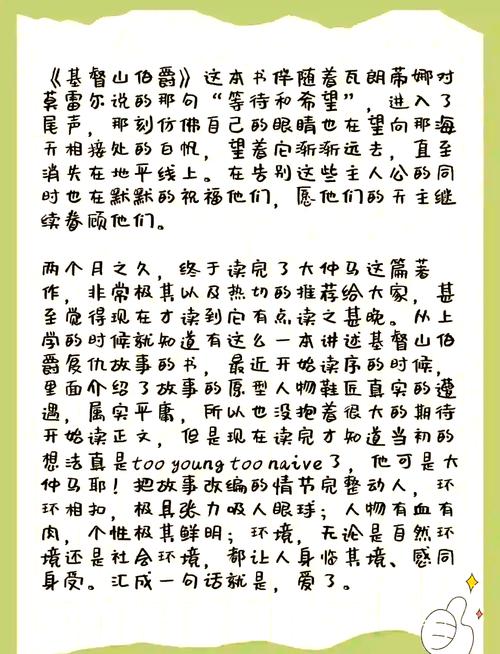 《基督山伯爵》这本书伴随着瓦朗蒂娜对
莫雷尔说的那句“等待和希望”，进入了
尾声，那刻仿佛自己的眼睛也在望向那海
天相接处的白帆，望着它渐渐远去，直至
消失在地平线上。在告别这些主人公的同
时也在默默的祝福他们，愿他们的天主继
续眷顾他们。
两个月之久，终于读完了大仲马这篇著
作，非常极其以及热切的推荐给大家，甚
至觉得现在才读到它有点读之甚晚。从上
学的时候就知道有这么一本讲述基督山伯
爵复仇故事的书，最近开始读序的时候，
里面介绍了故事的原型人物鞋匠真实的遭
遇，属实平庸，所以也没抱着很大的期待
开始读正文，但是现在读完才知道当初的
想法真是too young too naive了，他可是大
仲马耶！把故事改编的情节完整动人，环
环相扣，极具张力吸人眼球；人物有血有
肉，个性极其鲜明；环境，无论是自然环
境还是社会环境，都让人身临其境、感同
身受。汇成一句话就是，爱了。